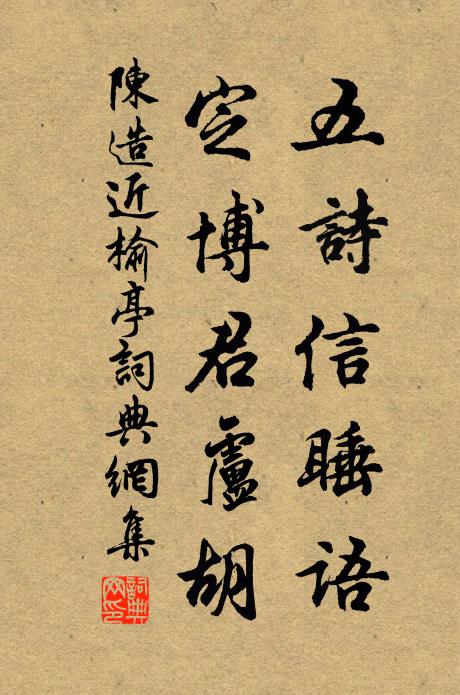 五詩信睡語
定博君盧胡
陳造近榆亭詞典網集
詞典网印